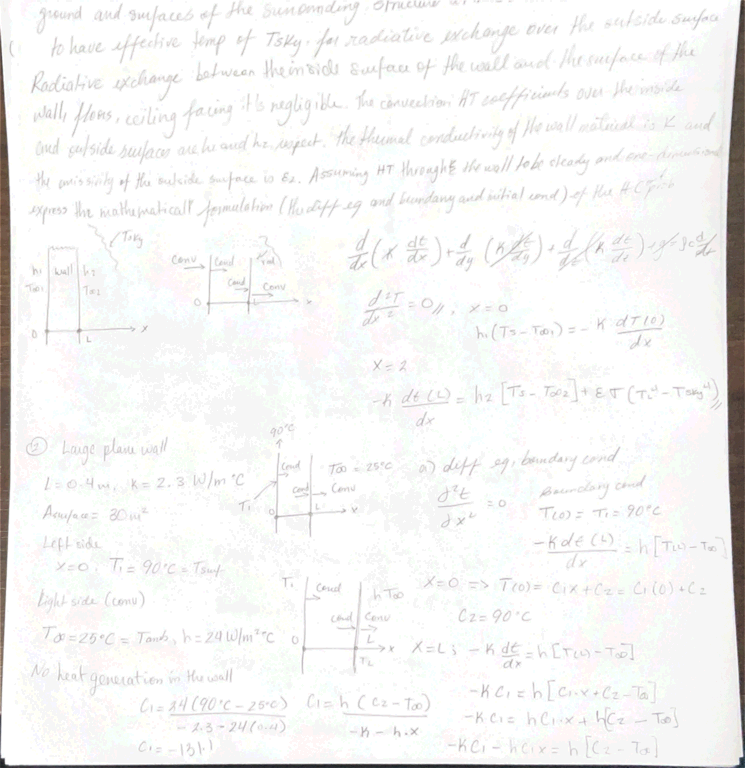 ground and surfaces of the surrounding structure
to have effective temp of Tsky. for radiative exchange over the outside surface
Radiative exchange between the inside surface of the wall and the surface of the
wall, floors, ceiling facing it's negligible. The convection HT coefficients over the inside
and outside surfaces are h1 and h2, respect. The thermal conductivity of the wall material is K and
the emissivity of the outside surface is ε2. Assuming HT through the wall to be steady and one-dimensional
express the mathematical formulation (the diff eq and boundary and initial cond) of the H.C
Tsky
h1 wall h2
T∞1 T∞2
0 L x
Conv Cond rad
Cond Conv
0 L x
d/dx (K dt/dx) + d/dy (K dt/dy) + d/dz (K dt/dz)
d²T/dx² = 0 //, x = 0
h1 (Ts - T∞1) = - K dT(0)/dx
X = 2
-K dt(L)/dx = h2 [Ts - T∞2] + ε σ (TL⁴ - Tsky⁴) //
② Large plane wall
L = 0.4 m, K = 2.3 W/m °C
Asurface = 30 m²
Left side
x=0, T1 = 90°C = Tsurf
Right side (conv)
T∞ = 25°C = Tamb, h = 24 W/m² °C
No heat generation in the wall
90°C
Cond T∞ = 25°C
Cond Conv
T1 0 L x
a) diff eq, boundary cond
d²t/dx² = 0
Boundary cond
T(0) = T1 = 90°C
-K dt(L)/dx = h [T(L) - T∞]
T1 Cond h T∞
Cond Conv
0 L x
TL
X=0 => T(0) = C1x + C2 = C1(0) + C2
C2 = 90°C
X=L ; - K dt/dx = h [T(L) - T∞]
-K C1 = h [C1.x + C2 - T∞]
-K.C1 = h C1.x + h[C2 - T∞]
-KC1 - hC1x = h [C2 - T∞]
C1 = h (C2 - T∞) / -K - h.x
C1 = 24 (90°C - 25°C) / - 2.3 - 24(0.4)
C1 = -131.1